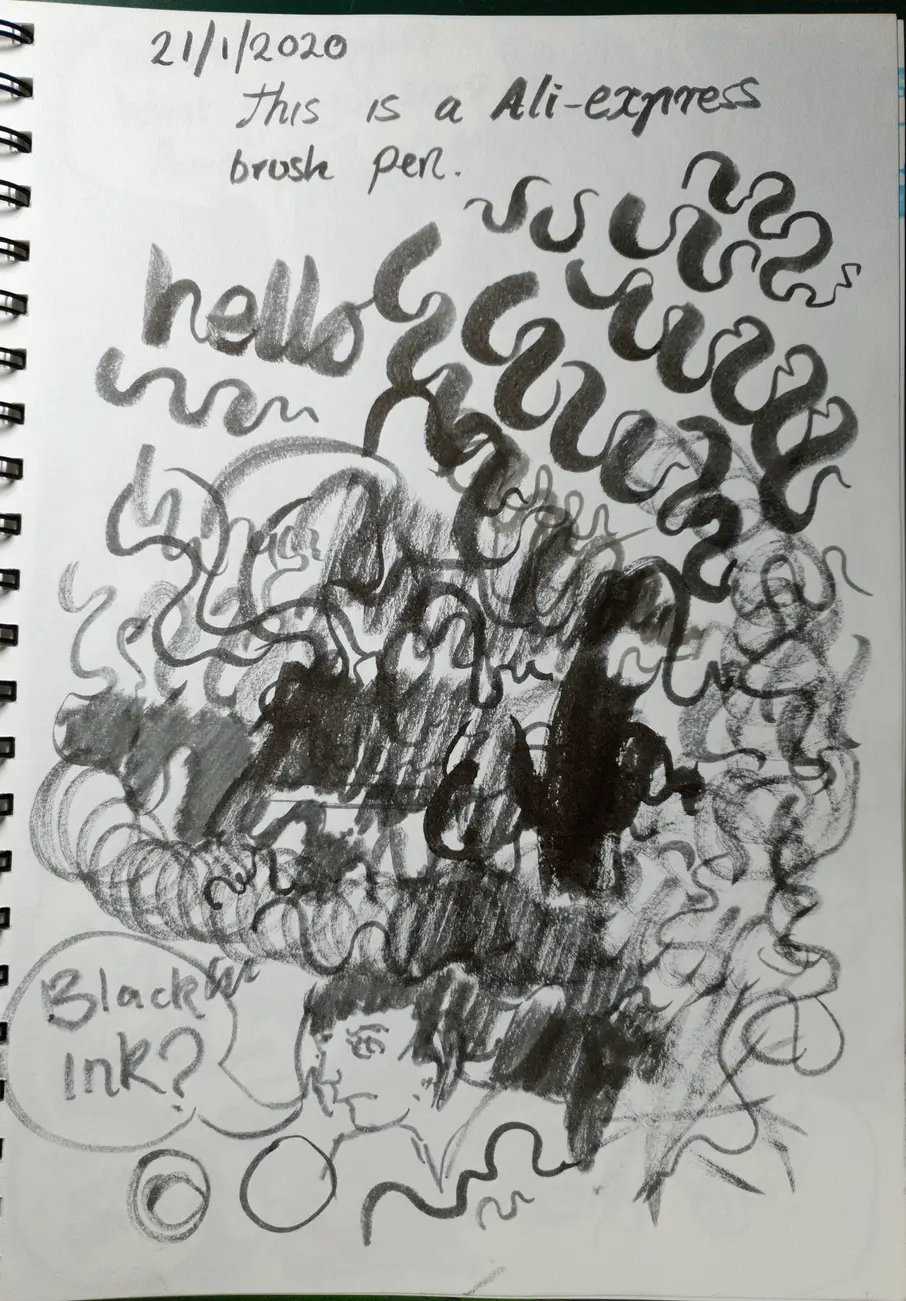 21/1/2020
This is a Ali-express
brush pen.
hello
Black
ink?